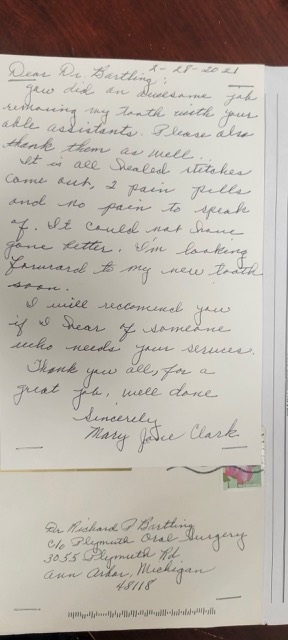 2-28-2021
Dear Dr. Bartling:
you did an awesome job
removing my tooth with your
able assistants. Please also
thank them as well..
It is all healed stitches
came out, 2 pain pills
and no pain to speak
of. It could not have
gone better. I'm looking
forward to my new tooth
soon.
I will reccomend you
if I hear of someone
who needs your services.
Thank you all, for a
great job, well done
Sincerely
Mary Jane Clark
Dr Richard P Bartling
c/o Plymouth Oral Surgery
3055 Plymouth Rd
Ann Arbor, Michigan
48118